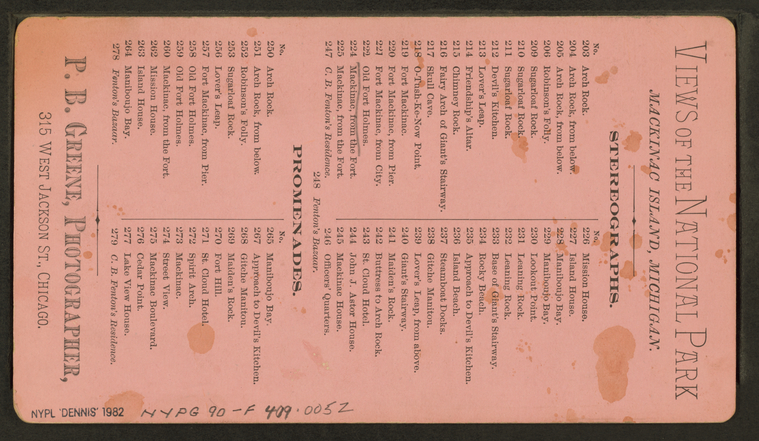 VIEWS OF THE NATIONAL PARK
MACKINAC ISLAND, MICHIGAN.
STEREOGRAPHS.
No.
203 Arch Rock.
204 Arch Rock, from below.
205 Arch Rock, from below.
206 Robinson's Folly.
209 Sugarloaf Rock.
210 Sugarloaf Rock.
211 Sugarloaf Rock.
212 Devil's Kitchen.
213 Lover's Leap.
214 Friendship's Altar.
215 Chimney Rock.
216 Fairy Arch of Giant's Stairway.
217 Skull Cave.
218 O-Tnah-Ke-Now Point.
219 Fort Mackinac.
220 Fort Mackinac, from Pier.
221 Fort Mackinac, from City.
222 Old Fort Holmes.
224 Mackinac, from the Fort.
225 Mackinac, from the Fort.
247 C. B. Fenton's Residence.
No.
226 Mission House.
227 Island House.
228 Manibonjo Bay.
229 Manibonjo Bay.
230 Lookout Point.
231 Leaning Rock.
232 Leaning Rock.
233 Base of Giant's Stairway.
234 Rocky Beach.
235 Approach to Devil's Kitchen.
236 Island Beach.
237 Steamboat Docks.
238 Gitche Maniton.
239 Lover's Leap, from above.
240 Giant's Stairway.
241 Maiden's Rock.
242 Buttress to Arch Rock.
243 St. Cloud Hotel.
244 John J. Astor House.
245 Mackinac House.
246 Officers' Quarters.
248 Fenton's Bazaar.
PROMENADES.
No.
250 Arch Rock.
251 Arch Rock, from below.
252 Robinson's Folly.
253 Sugarloaf Rock.
256 Lover's Leap.
257 Fort Mackinac, from Pier.
258 Old Fort Holmes.
259 Old Fort Holmes.
260 Mackinac, from the Fort.
262 Mission House.
263 Island House.
264 Manibonjo Bay.
278 Fenton's Bazaar.
No.
265 Manibonjo Bay.
267 Approach to Devil's Kitchen.
268 Gitche Maniton.
269 Maiden's Rock.
270 Fort Hill.
271 St. Cloud Hotel.
272 Spirit Arch.
273 Mackinac.
274 Street View.
275 Mackinac Boulevard.
276 Cedar Point.
277 Lake View House.
279 C. B. Fenton's Residence.
P. B. GREENE, PHOTOGRAPHER,
315 WEST JACKSON ST., CHICAGO.
NYPL 'DENNIS' 1982
NYPG 90-F 409.0052